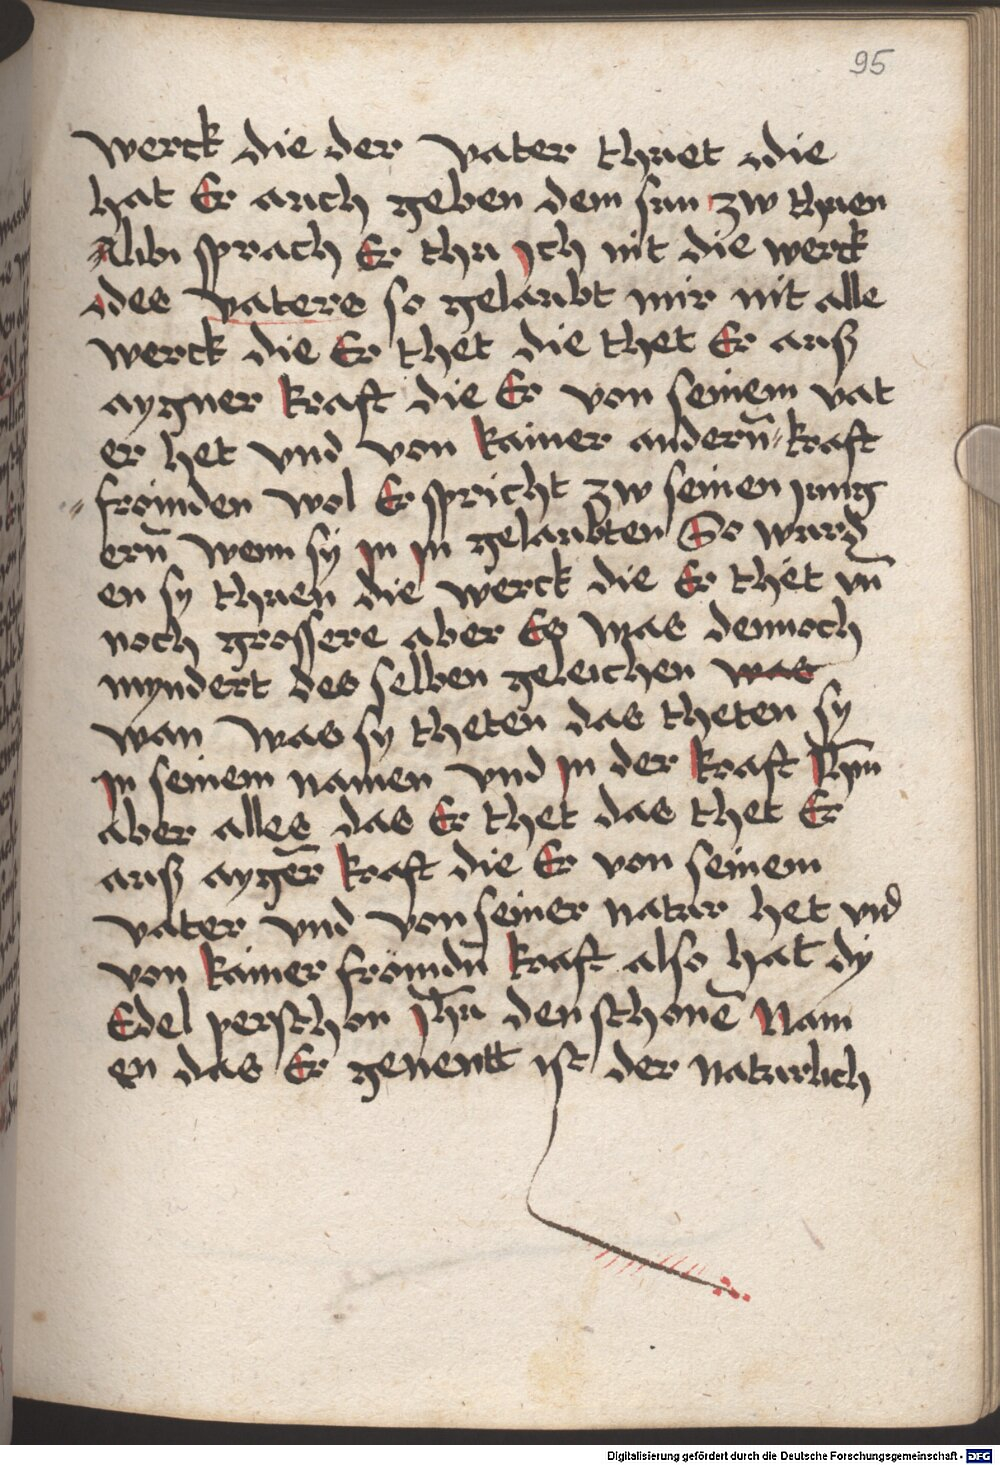 95
werck die der vater thuet die
hat Er auch geben dem sun zw thuen
Alibi sprach Er thu ich nit die werck
des vaters so gelaubt mir nit alle
werck die Er thet die thet Er auß
aygner kraft die Er von seinem vat
er het vnd von kainer andern̄ kraft
frömden wol Er spricht zw seinen iung
ern̄ wenn sy in in gelaubten So wurd
en sy thuen die werck die Er thet vn̄
noch grossere aber Es was dennoch
myndert des selben geleichen was
wan was sy theten das theten sy
in seinem namen vnd in der kraft Jh̄u
aber alles das Er thet das thet Er
auß aygēr kraft die Er von seinem
vater vnd von seiner natur het vnd
von kainer frömdn̄ kraft also hat dy
Edel persthon jh̄u den schonē Nam
en das Er genentt ist der naturlich
Digitalisierung gefördert durch die Deutsche Forschungsgemeinschaft - DFG